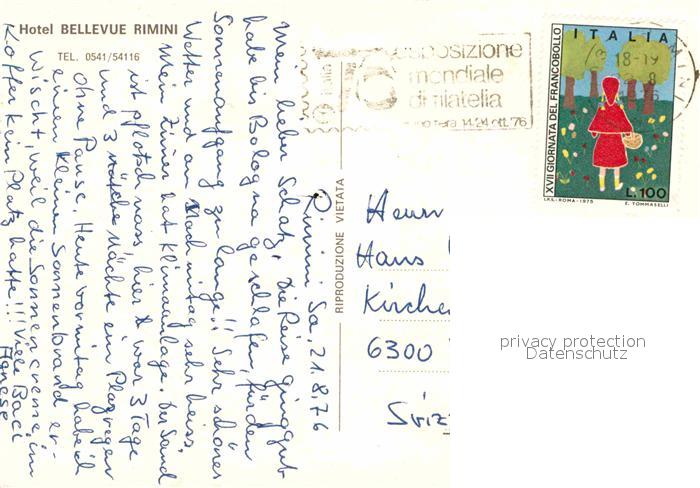 Hotel BELLEVUE RIMINI
TEL. 0541/54116
Rimini Sa, 21.8.76
Mein lieber Schatz, Die Reise ging gut
habe bis Bologna geschlafen, für den
Sonnenaufgang zu lange!! Sehr schönes
Wetter und am Nachmittag sehr heiss.
Mein Zimmer hat Klimaanlage. Der Sand
ist pflotsch nass, hier war 3 Tage
und 3 Nächte ein Platzregen
ohne Pause. Heute vormittag habe ich
einen kleinen Sonnenbrand er-
wischt, weil die Sonnencreme im
Koffer kein Platz hatte!!! Viele Baci
Agnese
RIPRODUZIONE VIETATA
esposizione
mondiale
di filatelia
14-24 ott. '76
18-19
ITALIA
XVII GIORNATA DEL FRANCOBOLLO
L.100
I.P.S.-ROMA-1975
E. TOMMASELLI
Herrn
Hans
Kirche
6300
Sviz
privacy protection
Datenschutz